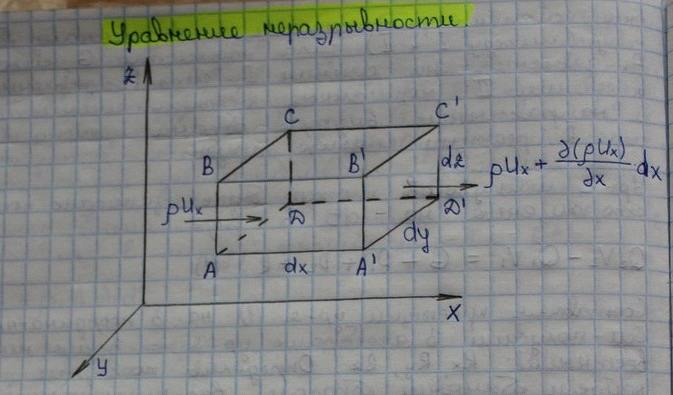 Уравнение неразрывности.
z
C
C'
B
B'
dz
ρUx + ∂(ρUx)/∂x dx
ρUx
D
D'
dy
A
dx
A'
x
y